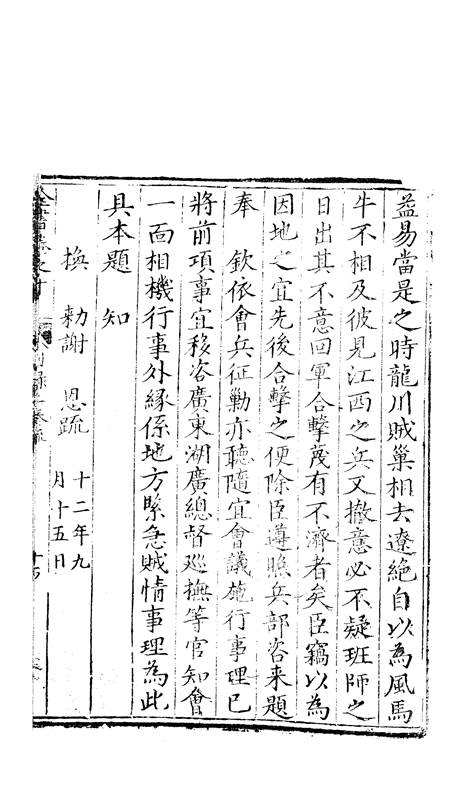 益易當是之時龍川賊巢相去遼絕自以為風馬
牛不相及彼見江西之兵又撤意必不疑班師之
日出其不意回軍合擊蔑有不濟者矣臣竊以為
因地之宜先後合擊之便除臣遵照兵部咨来題
奉　欽依會兵征勦亦聽隨宜會議施行事理已
將前項事宜移咨廣東湖廣總督廵撫等官知會
一面相機行事外緣係地方緊急賊情事理為此
具本題　知
換　勑謝　恩疏　十二年九月十五日